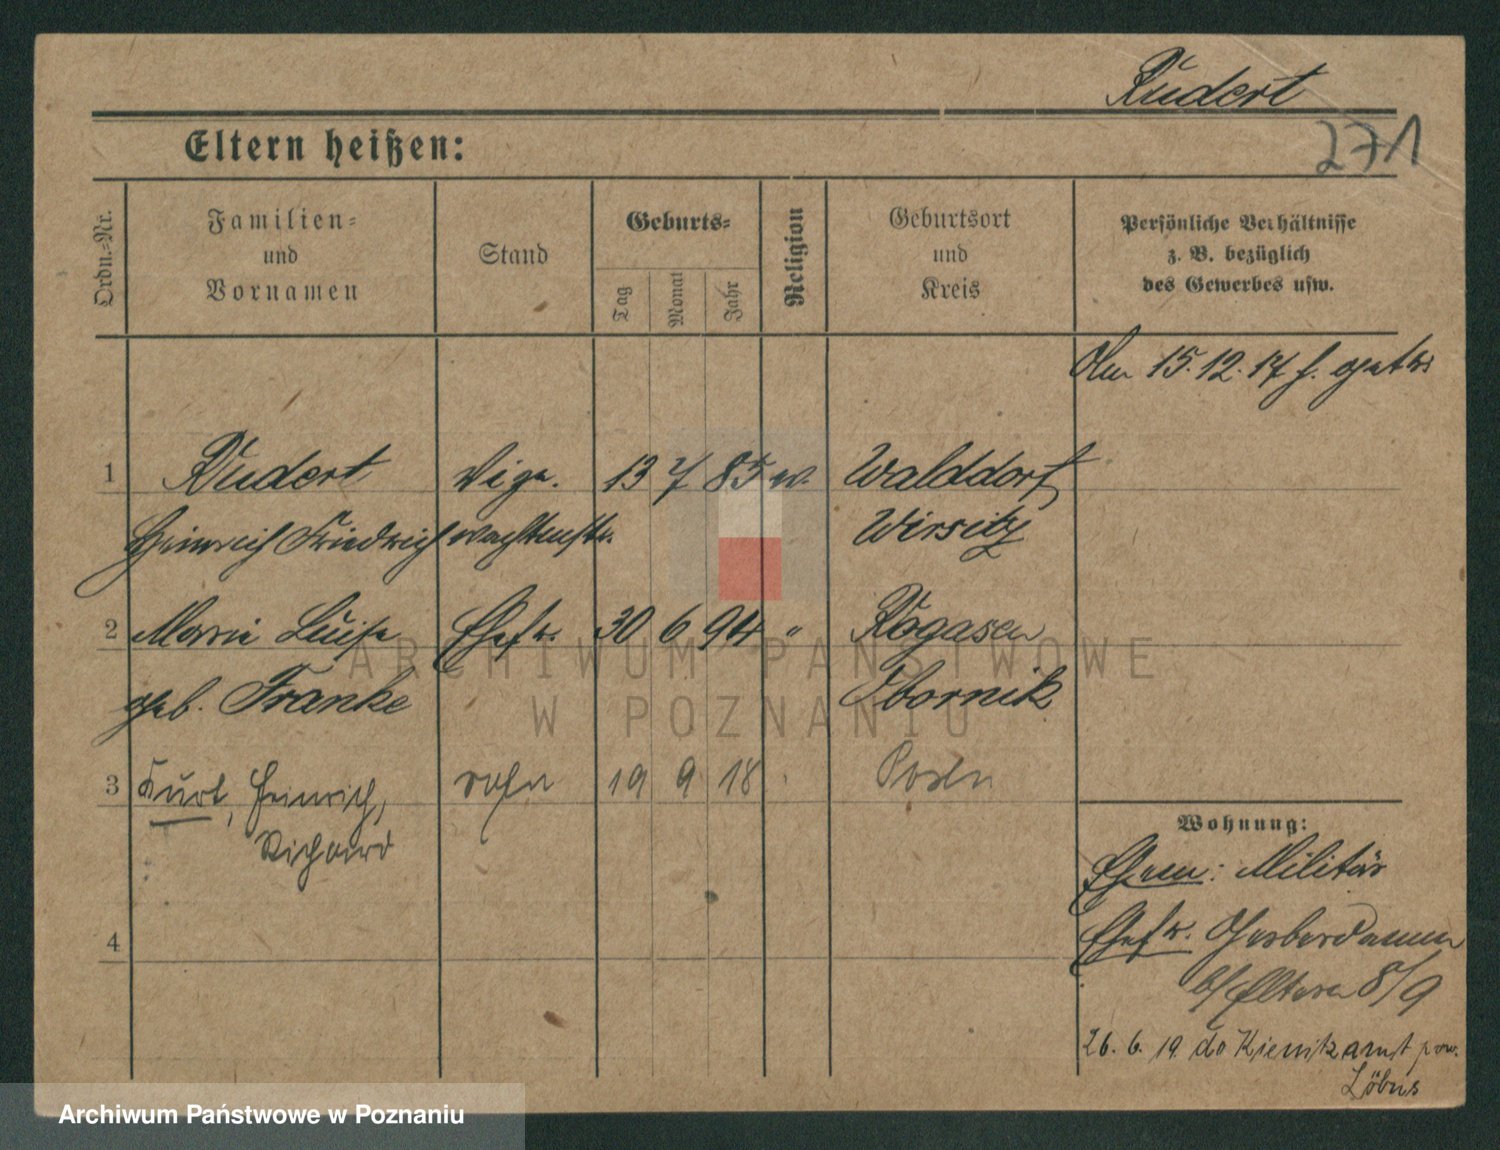 Rudert
271
Eltern heißen:
Ordn.=Nr.
Familien=
und
Vornamen
Stand
Geburts=
Tag
Monat
Jahr
Religion
Geburtsort
und
Kreis
Persönliche Verhältnisse
z. B. bezüglich
des Gewerbes usw.
15.12.17
1 Rudert Vize. 13 7 85 Walddorf
Heinrich Friedrich wachtmstr. Wirsitz
2 Marie Luise Ehefr. 30 6 94 " Rogasen
geb. Franke Obornik
3 Kurt, Heinrich, Sohn 19 9 18 Posen
Richard
4
Wohnung:
Ehem: Militär
Ehefr. Gerberdamm
b/ Eltern 8/9
26. 6. 19. do Kienitz amt pow.
Löbus
ARCHIWUM PAŃSTWOWE
W POZNANIU
Archiwum Państwowe w Poznaniu